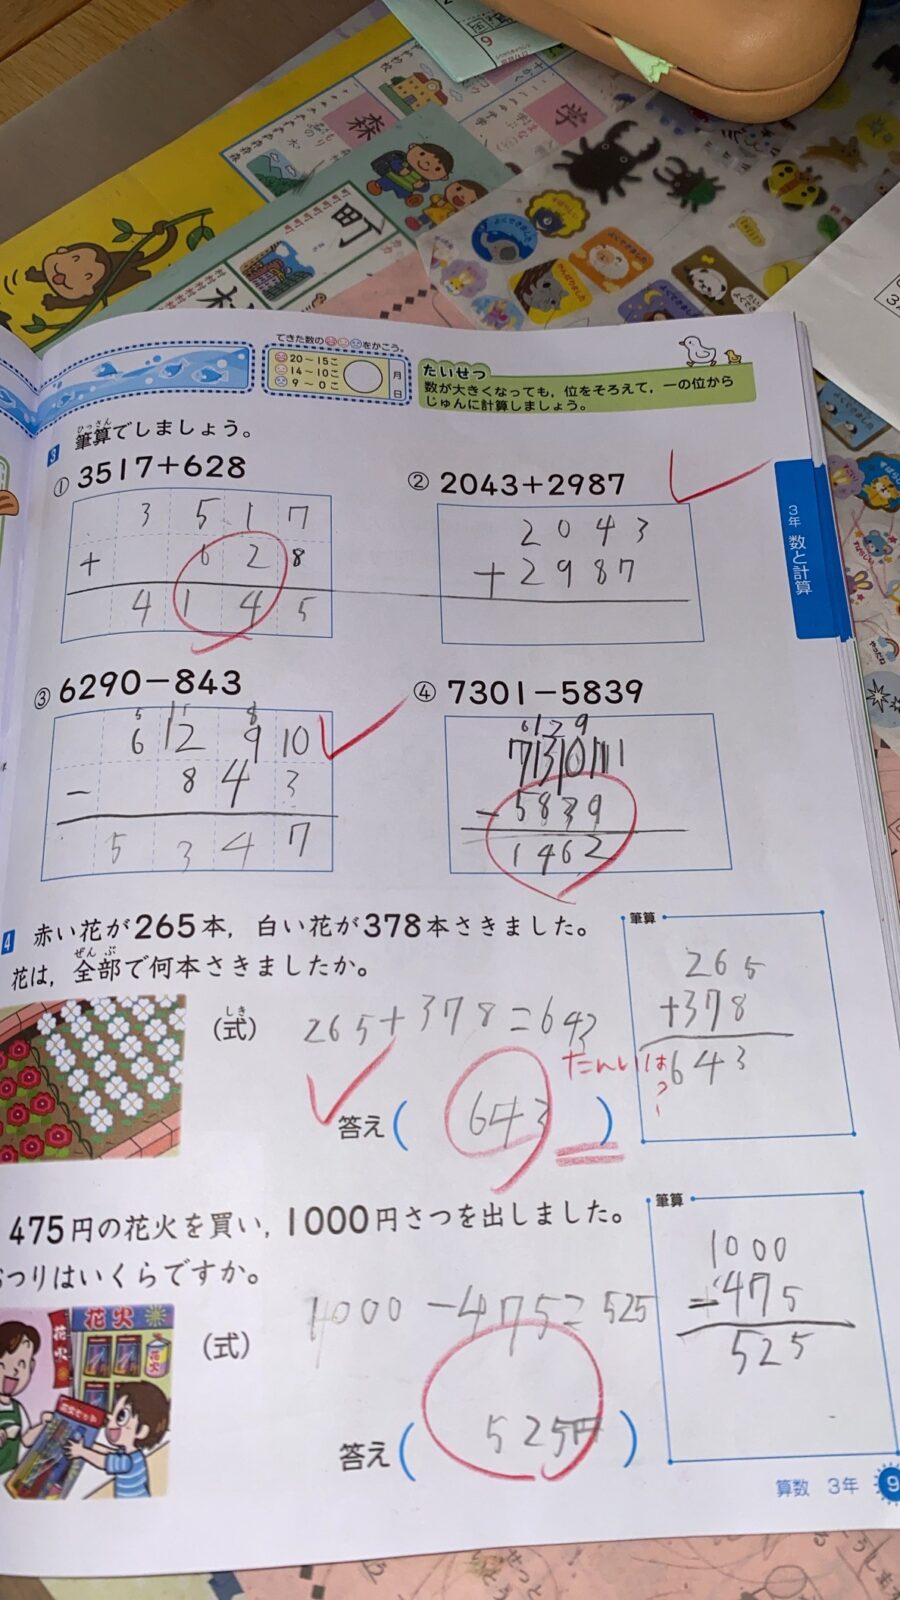 森
学
町
できた数の をかこう。
20～15こ
14～10こ
9～0こ
月
日
たいせつ
数が大きくなっても，位をそろえて，一の位から
じゅんに計算しましょう。
3年 数と計算
3 筆算でしましょう。
ひっさん
① 3517+628
3 5 1 7
+ 6 2 8
4 1 4 5
② 2043+2987
2 0 4 3
+ 2 9 8 7
③ 6290-843
5 11 8
6 12 9 10
- 8 4 3
5 3 4 7
④ 7301-5839
6 12 9
7 13 10 11
- 5 8 3 9
1 4 6 2
4 赤い花が265本，白い花が378本さきました。
花は，全部で何本さきましたか。
ぜんぶ
(式)
しき
265+378=643
たんいは?
答え( 643 )
筆算
265
+378
643
475円の花火を買い，1000円さつを出しました。
おつりはいくらですか。
花火
花火
花火
(式)
1000-475=525
答え( 525円 )
筆算
1000
-475
525
算数 3年 9